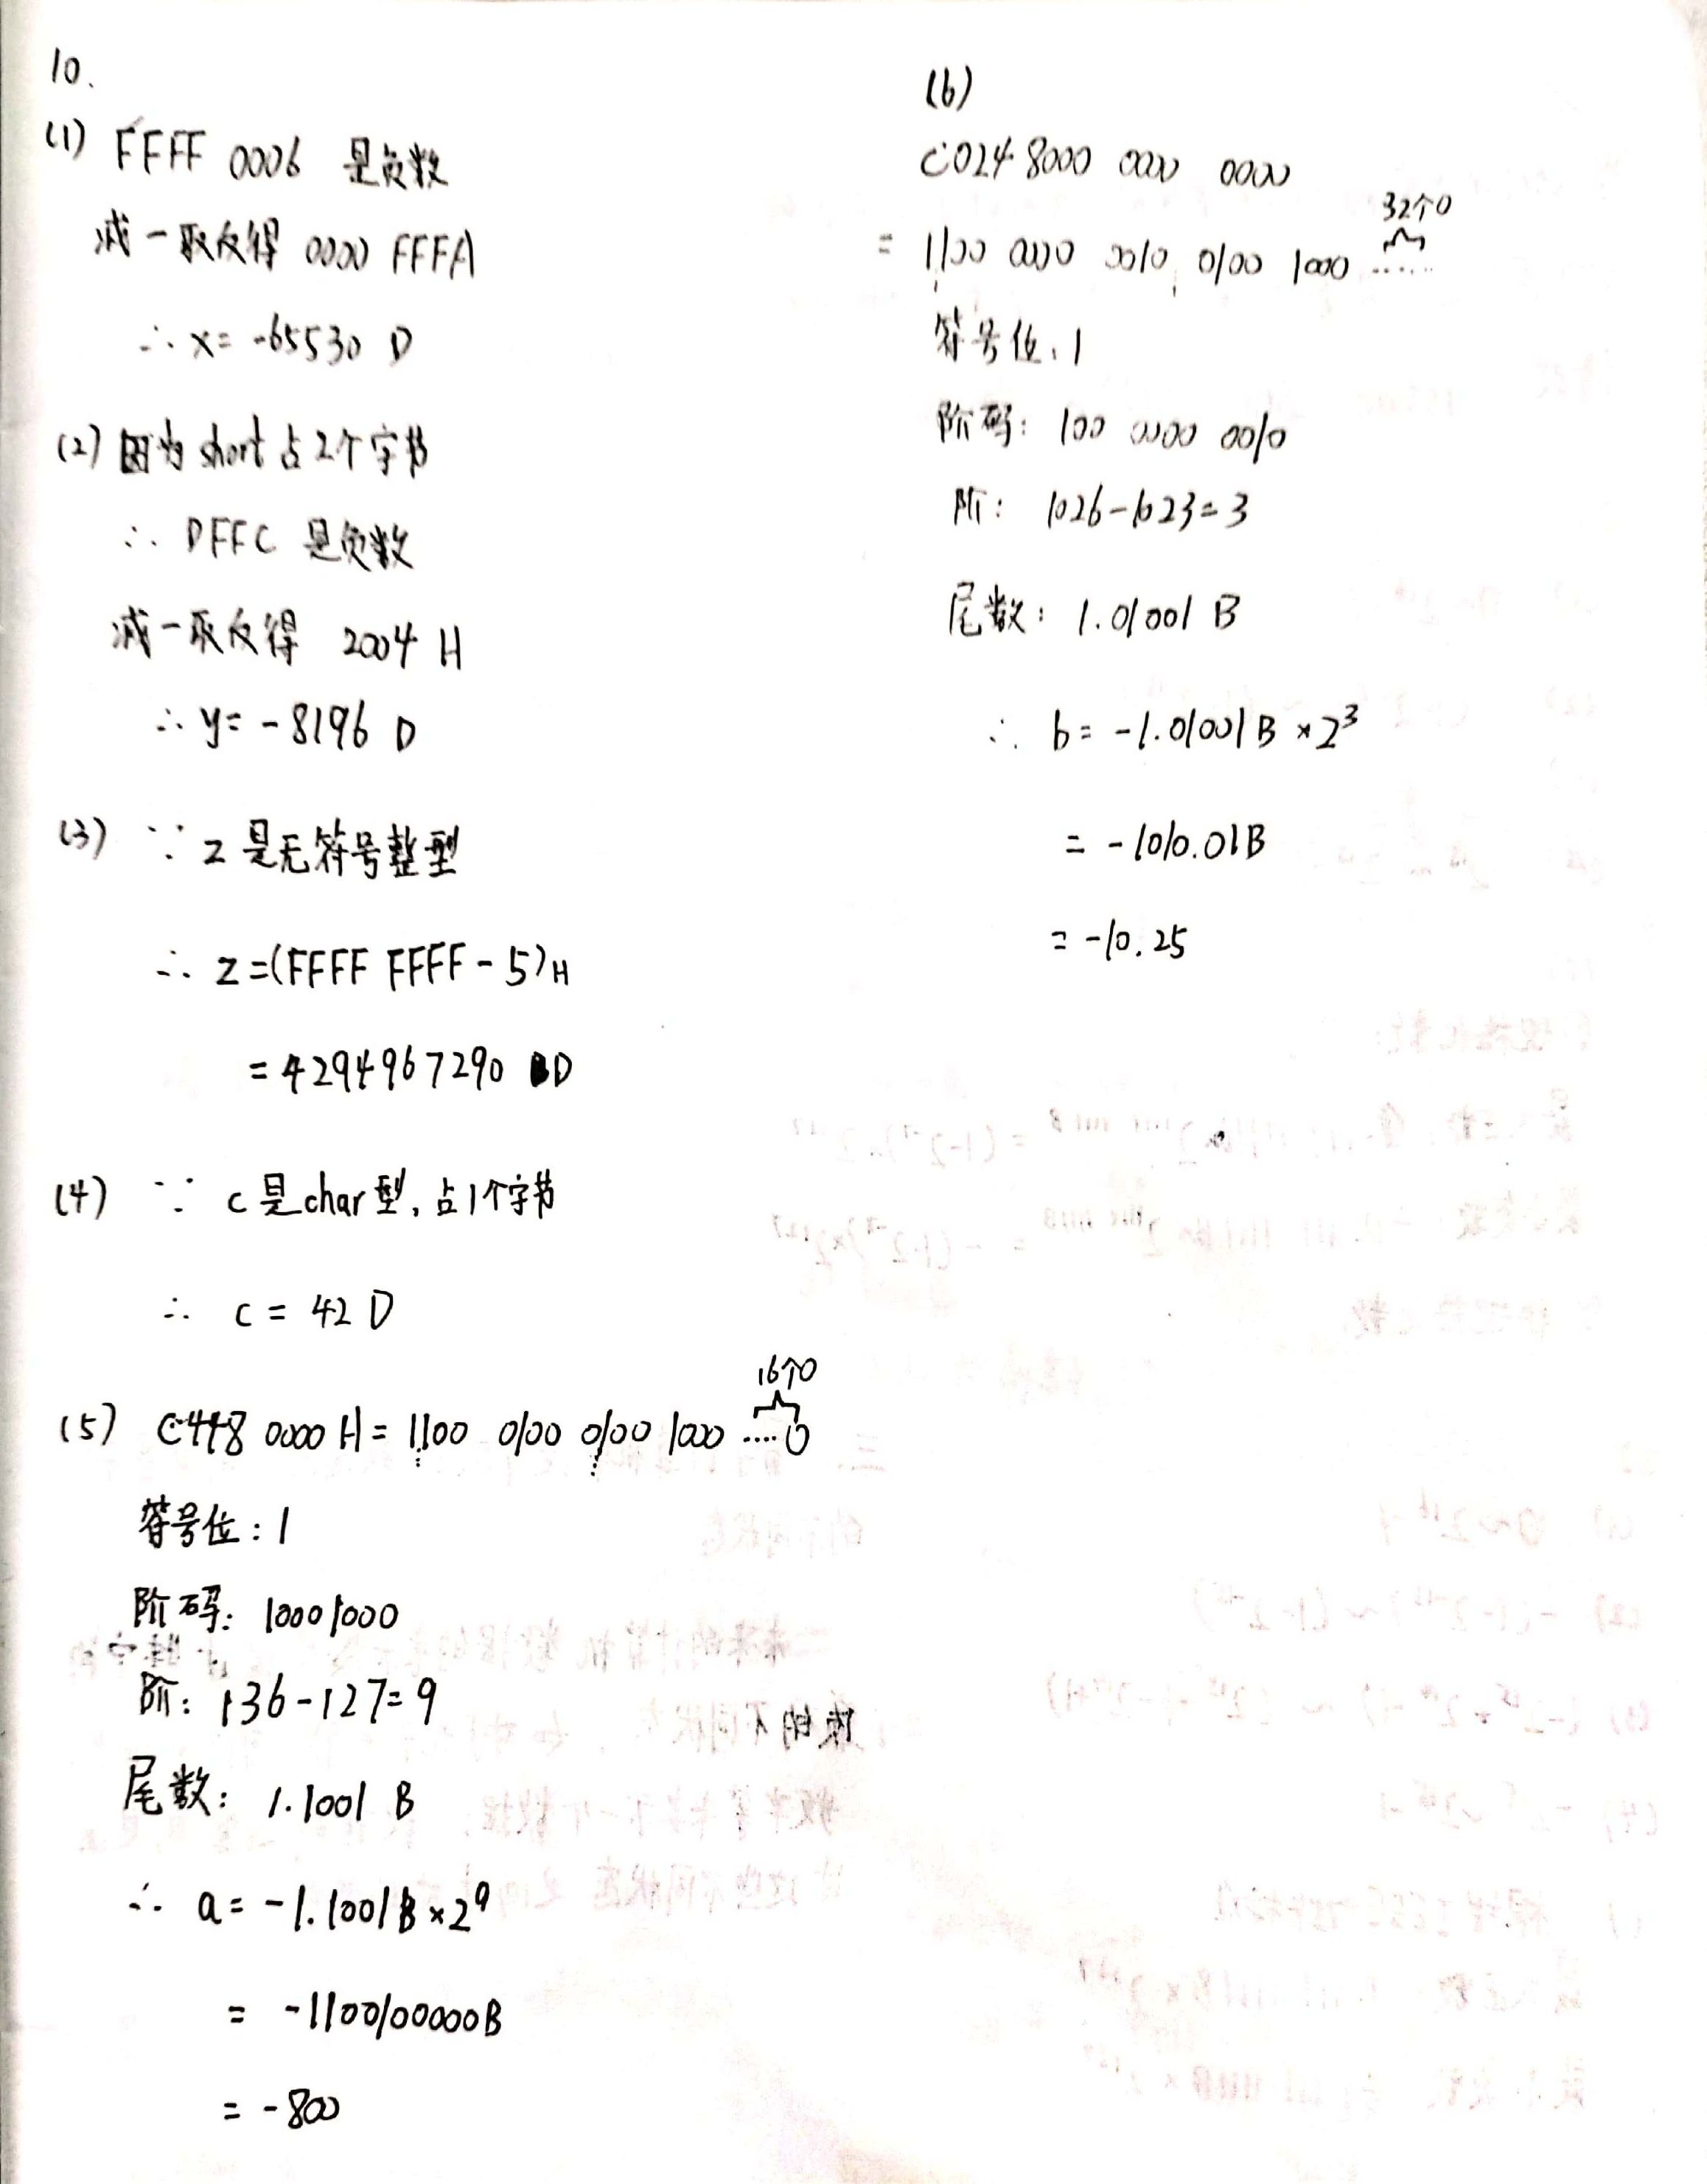 10.
(1) FFFF 0006 是负数
减一取反得 0000 FFFA
∴ x= -65530 D
(2) 因为 short 占2个字节
∴ DFFC 是负数
减一取反得 2004 H
∴ y= -8196 D
(3) ∵ z 是无符号整型
∴ z=(FFFF FFFF - 5)H
= 4294967290 D
(4) ∵ c是char型, 占1个字节
∴ c = 42 D
16个0
(5) C448 0000 H = 1100 0100 0100 1000 ....0
符号位: 1
阶码: 10001000
阶: 136-127=9
尾数: 1.1001 B
∴ a= -1.1001B×2⁹
= -1100100000B
= -800
(6)
C024 8000 0000 0000
32个0
= 1100 0000 0010 0100 1000 ......
符号位: 1
阶码: 100 0000 0010
阶: 1026-1023=3
尾数: 1.01001 B
∴ b= -1.01001B ×2³
= -1010.01B
= -10.25